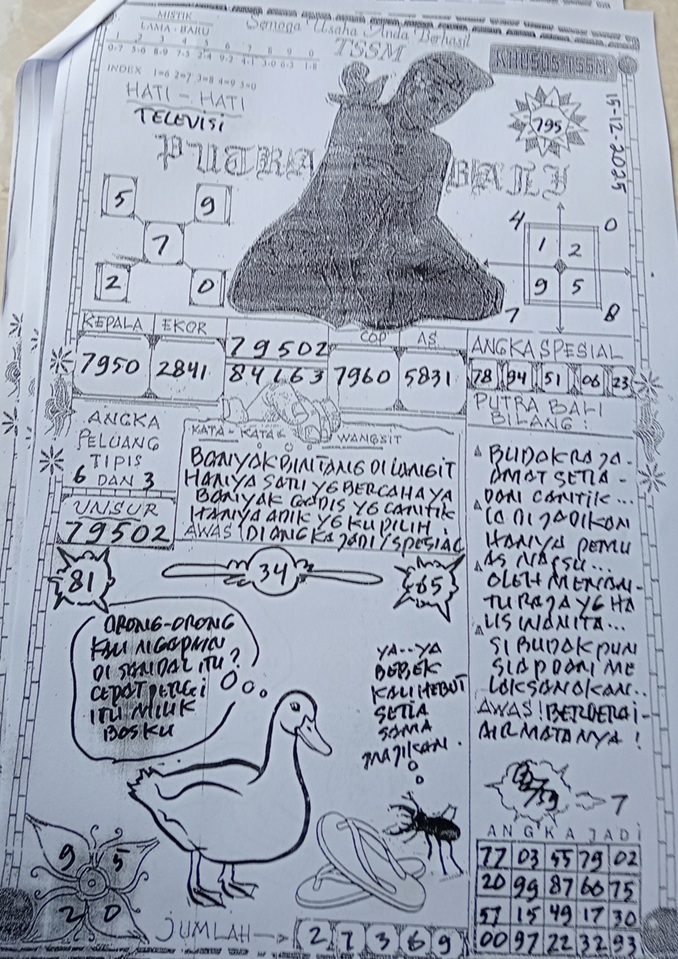 MISTIK
LAMA - BARU
Semoga Usaha Anda Berhasil
TSSM
KHUSUS TSSM
1 2 3 4 5 6 7 8 9 0
0-7 5-0 8-9 7-5 2-4 9-2 4-1 3-0 6-3 1-8
INDEX 1=6 2=7 3=8 4=9 5=0
HATI - HATI
TELEVISI
795
15-12-2025
PUTRA BALI
5 9
7
2 0
4 0
1 2
9 5
7 8
KEPALA EKOR COP AS ANGKA SPESIAL
7950 2841 79502 7960 5831
84163
78 94 51 06 23
ANGKA
PELUANG
TIPIS
6 DAN 3
UNSUR
79502
KATA - KATA WANGSIT
BANYAK BINTANG DI LANGIT
HANYA SATU YG BERCAHAYA
BANYAK GADIS YG CANTIK
HANYA ADIK YG KU PILIH
AWAS! DI ANGKA JADI/SPESIAL
PUTRA BALI
BILANG:
BUDAK RAJA-
AMAT SETIA-
DAN CANTIK...
IA DI JADIKAN
HANYA PEMU
AS NAFSU...
OLEH MENAN-
TU RAJA YG HA
US WANITA...
SI BUDAK PUN
SIAP DAN ME
LAKSANAKAN..
AWAS! BERDERAI-
AIR MATANYA!
81
34
65
ORONG-ORONG
KAU NGAPAIN
DI SANDAL ITU?
CEPAT PERGI
ITU MILIK
BOSKU
YA--YA
BEBEK
KALI HEBUT
SETIA
SAMA
MAJIKAN.
7
ANGKA JADI
77 03 55 79 02
20 99 87 60 75
57 15 49 17 30
00 97 22 32 93
9 5
2 0
JUMLAH
2 7 3 6 9